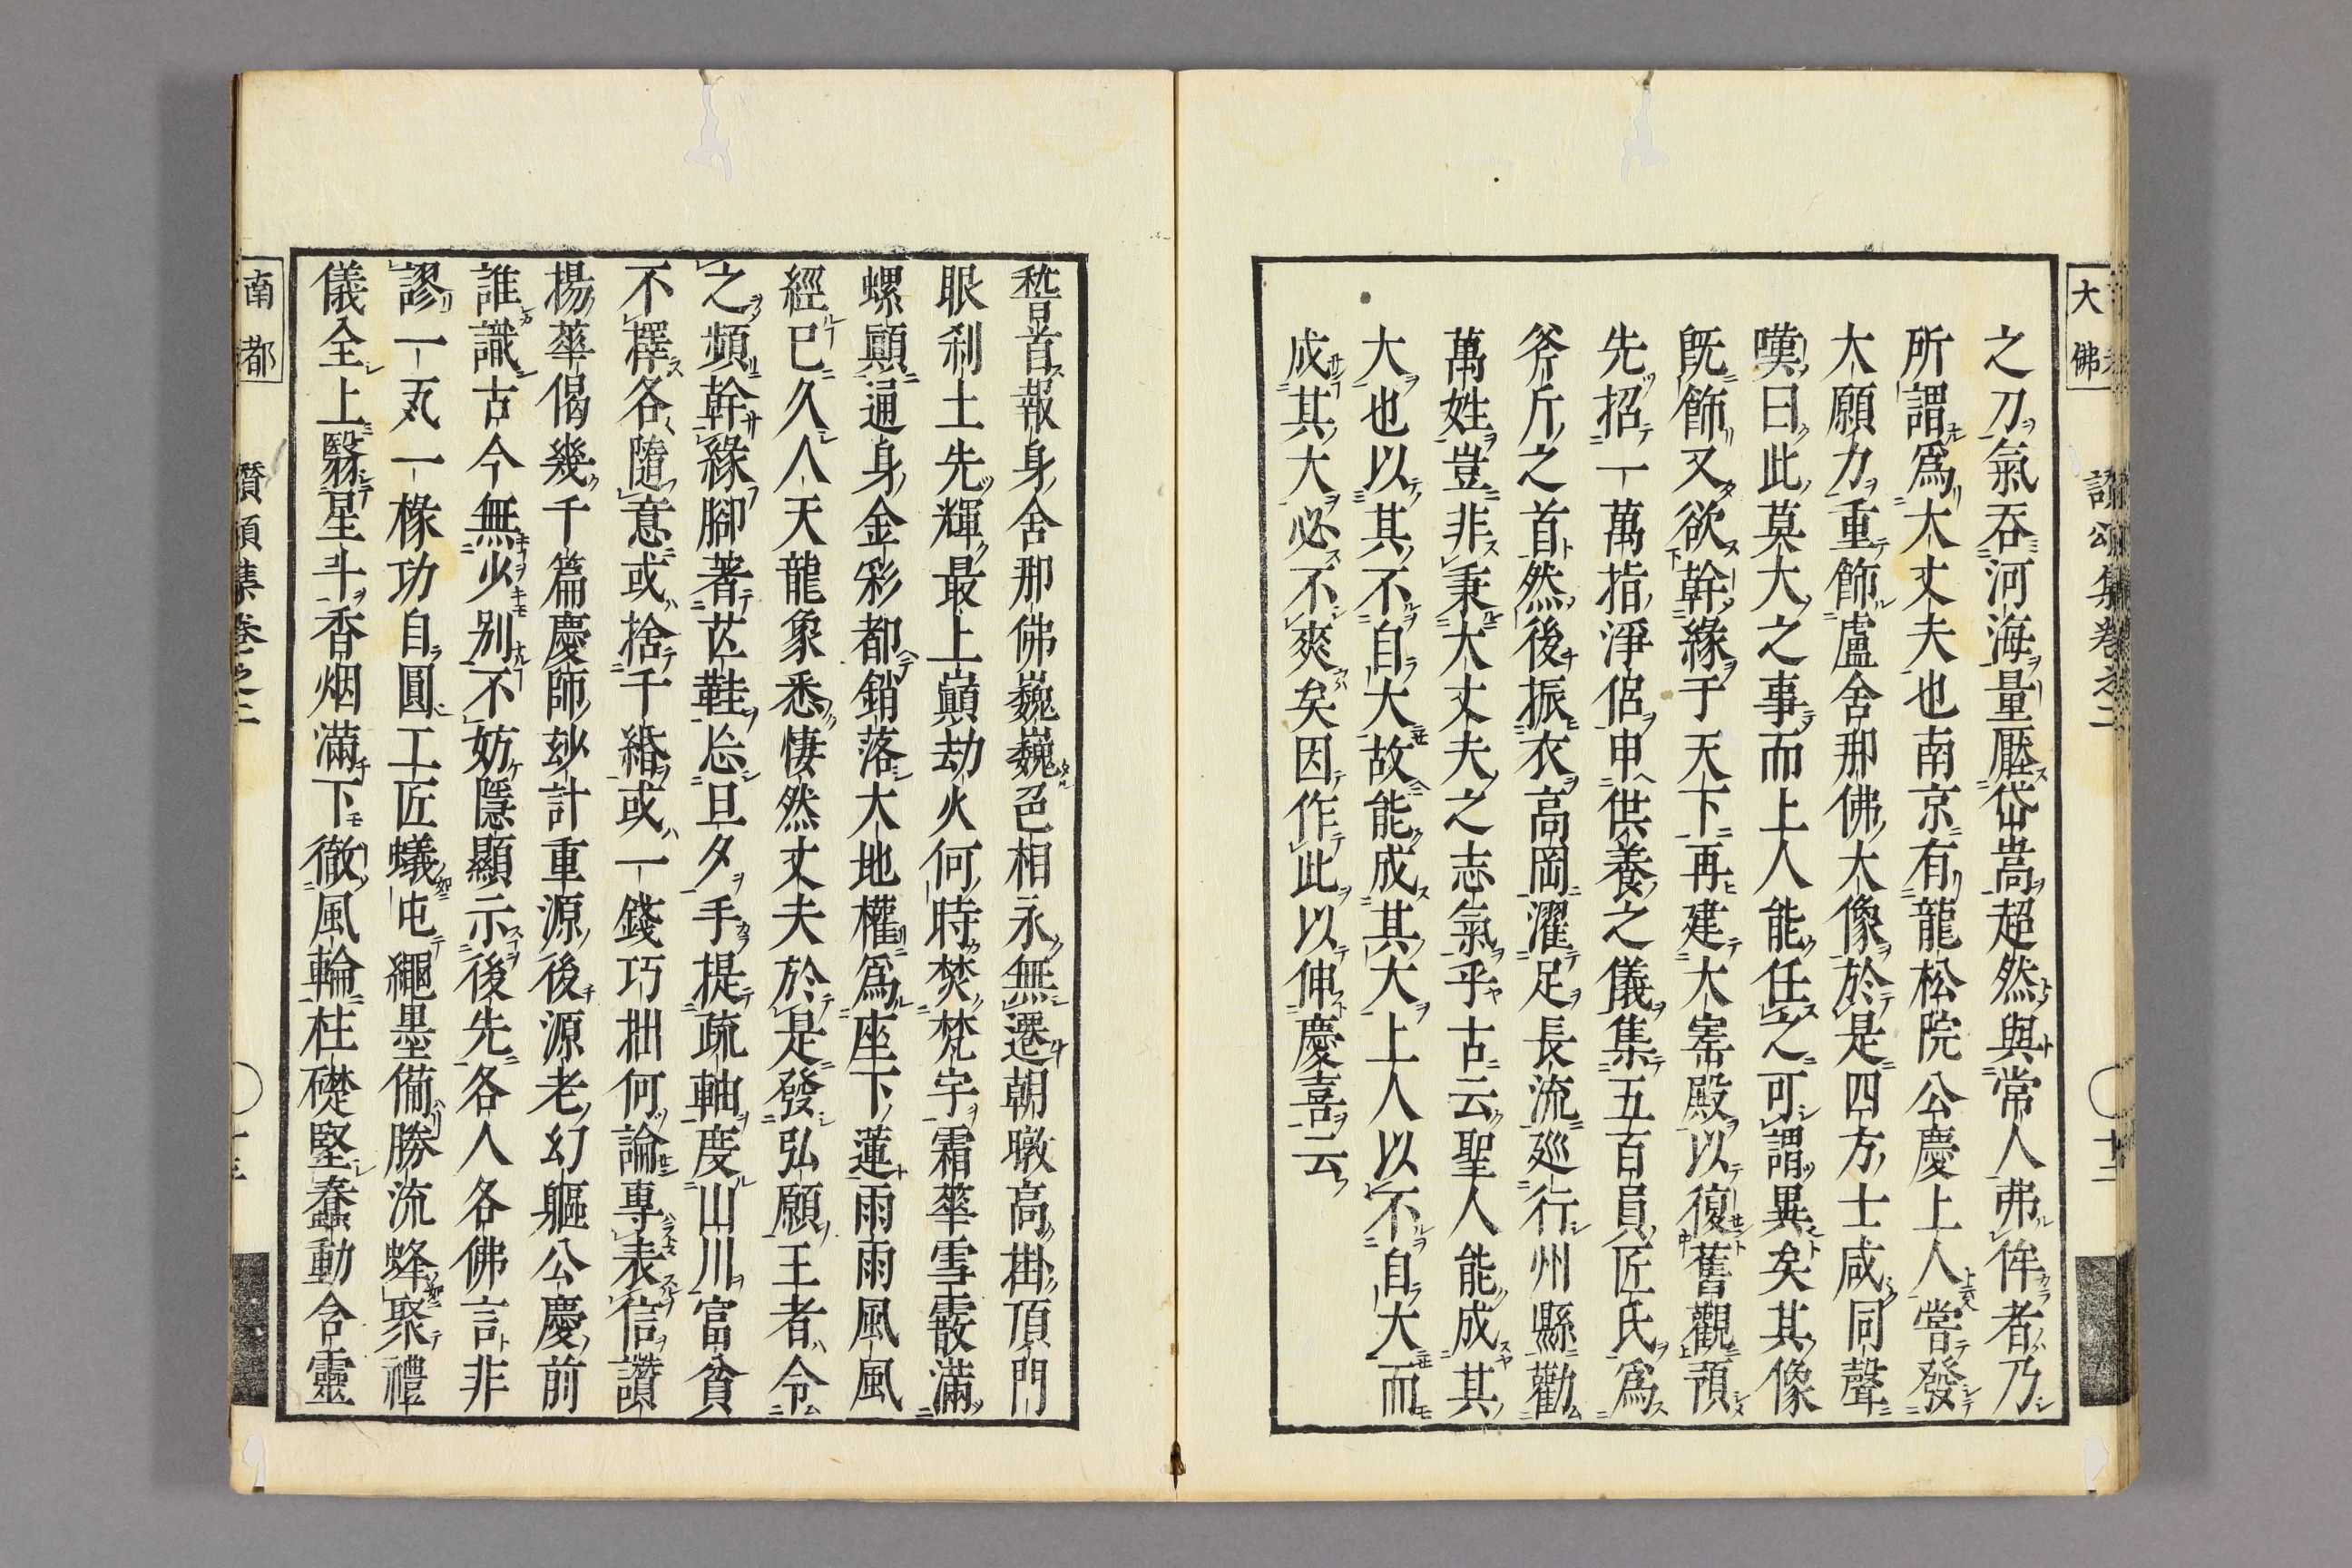 大佛
讃頌集卷之二
十二
之刀氣吞河海量壓岱嵩超然與常人弗侔者乃
所謂爲大丈夫也南京有龍松院公慶上人嘗發
大願力重飾盧舍那佛大像於是四方士咸同聲
嘆曰此莫大之事而上人能任之可謂異矣其像
既飾又欲幹緣于天下再建大寳殿以復舊觀預
先招一萬指淨侶申供養之儀集五百員匠氏爲
斧斤之首然後振衣高岡濯足長流廵行州縣勸
萬姓豈非秉大丈夫之志氣乎古云聖人能成其
大也以其不自大故能成其大上人以不自大而
成其大必不爽矣因作此以伸慶喜云
稽首報身舍那佛巍巍色相永無遷朝暾高掛頂門
眼刹土先輝最上巔劫火何時焚梵宇霜華雪霰滿
螺顱通身金彩都銷落大地權爲座下蓮雨雨風風
經已久人天龍象悉悽然丈夫於是發弘願王者令
之頻幹緣腳著芒鞋忘旦夕手提疏軸度山川富貧
不擇各隨意或捨千緡或一錢巧拙何論專表信讚
揚華偈幾千篇慶師玅計重源後源老幻軀公慶前
誰識古今無少別不妨隱顯示後先各人各佛言非
謬一丸一椽功自圓工匠蟻屯繩墨備勝流蜂聚禮
儀全上翳星斗香烟滿下徹風輪柱礎堅蠢動含靈
南都
讃頌集卷之二